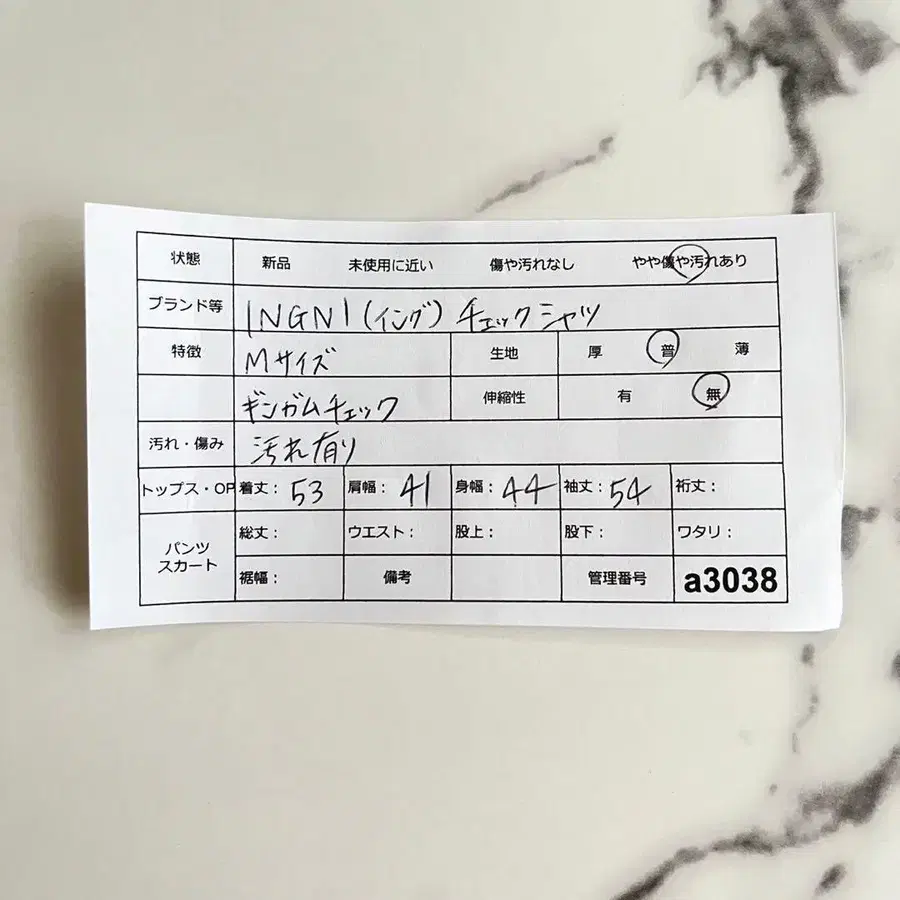 状態 新品 未使用に近い 傷や汚れなし やや傷や汚れあり
ブランド等 INGNI(イング) チェックシャツ
特徴 Mサイズ 生地 厚 普 薄
ギンガムチェック 伸縮性 有 無
汚れ・傷み 汚れ有り
トップス・OP 着丈: 53 肩幅: 41 身幅: 44 袖丈: 54 裄丈:
パンツ スカート 総丈: ウエスト: 股上: 股下: ワタリ:
裾幅: 備考 管理番号 a3038